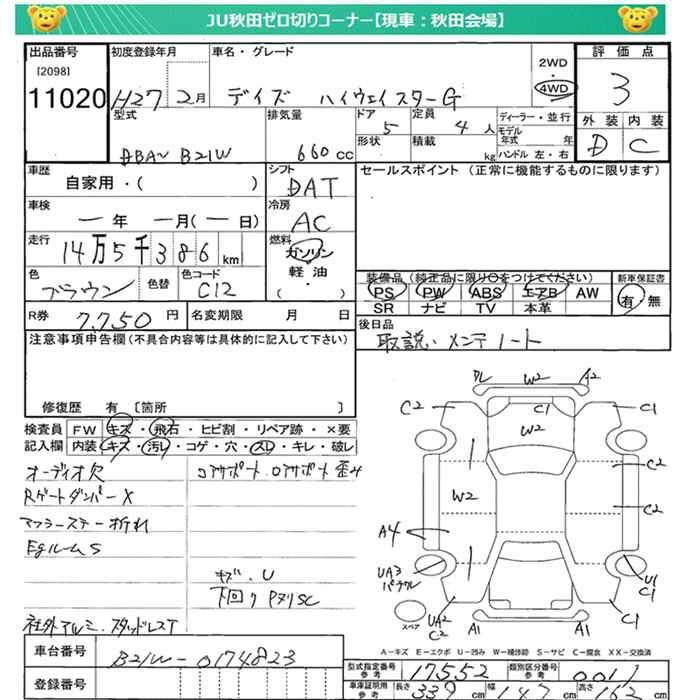 JU秋田ゼロ切りコーナー【現車：秋田会場】
出品番号
[2098]
11020
初度登録年月
H27 2月
車名・グレード
デイズ ハイウェイスターG
2WD
・
4WD
評価点
3
外装 内装
D C
型式
DBA- B21W
排気量
660 cc
ドア
5
形状
定員
4 人
積載
kg
ディーラー・並行
モデル
年式 年
ハンドル 左・右
車歴
自家用・( )
シフト
DAT
セールスポイント (正常に機能するものに限ります)
車検
一年 一月(一日)
冷房
AC
走行
14万5千386km
燃料
ガソリン
軽油
( )
色
ブラウン
色替
色コード
C12
装備品 (純正品に限り○をつけてください)
PS PW ABS エアB AW
SR ナビ TV 本革
新車保証書
有・無
R券
7,750 円
名変期限 月 日
後日品
取説、メンテノート
注意事項申告欄(不具合内容等は具体的に記入して下さい)
修復歴 有 [箇所 ]
検査員 FW キズ・飛石・ヒビ割・リペア跡・×要
記入欄 内装 キズ・汚レ・コゲ・穴・スレ・キレ・破レ
オーディオ欠
コアサポート、ロアサポート歪み
Rゲートダンパー×
マフラーステー折れ
EgルームS
キズ、U
下回り PタリSC
社外アルミ、スタッドレスT
W2
A2
C2
C1
C1
W2
C2
W2
C2
A4
UA3
U1
C1
UA2
C2
C1
スペア
A1
A1
A－キズ E－エクボ U－凹み W－補修跡 S－サビ C－腐食 XX－交換済
車台番号
B21W-0174823
登録番号
型式指定番号
参考
17552
類別区分番号
参考
0011
車庫証明用
参考
長さ
339 cm
幅
147 cm
高さ
162 cm